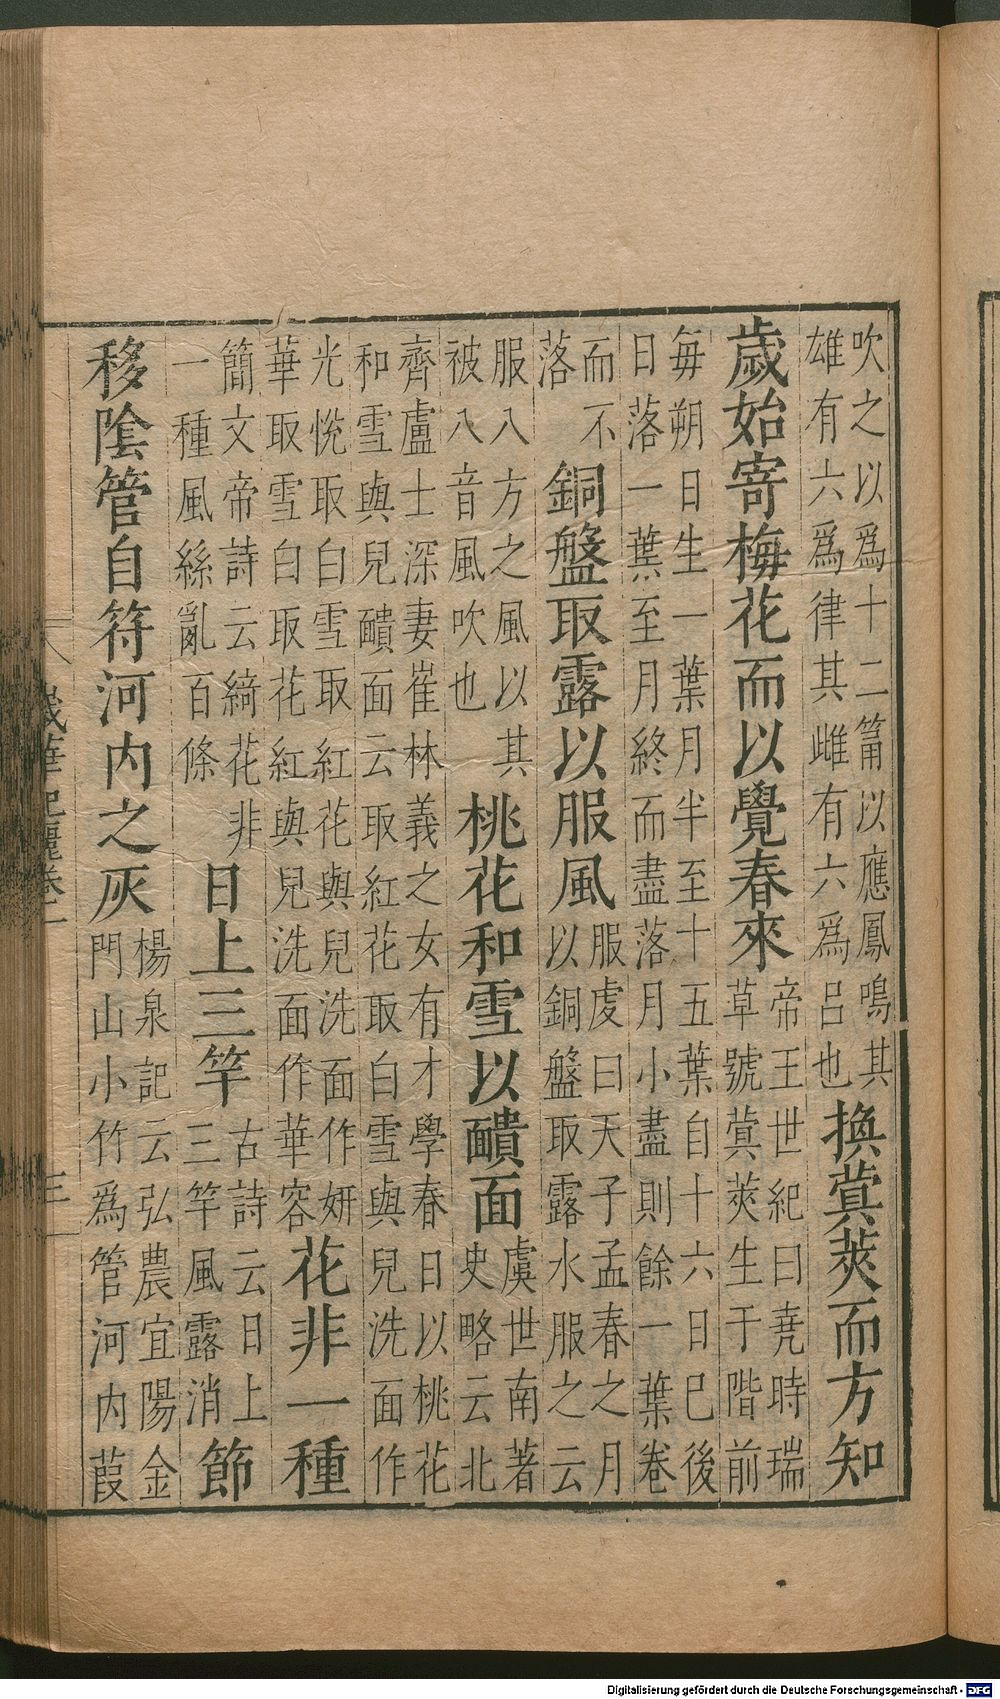 吹之以爲十二筩以應鳳鳴其
雄有六爲律其雌有六爲呂也
換蓂莢而方知
歲始寄梅花而以覺春來
帝王世紀曰堯時瑞
草號蓂莢生于階前
每朔日生一葉月半至十五葉自十六日巳後
日落一葉至月終而盡落月小盡則餘一葉卷
而不
落
銅盤取露以服風
服虔曰天子孟春之月
以銅盤取露水服之云
服八方之風以其
被八音風吹也
桃花和雪以靧面
虞世南著
史略云北
齊盧士深妻崔林義之女有才學春日以桃花
和雪與兒靧面云取紅花取白雪與兒洗面作
光悅取白雪取紅花與兒洗面作妍
華取雪白取花紅與兒洗面作華容
花非一種
簡文帝詩云綺花非
一種風絲亂百條
日上三竿
古詩云日上
三竿風露消
節
移陰管自符河内之灰
楊泉記云弘農宜陽金
門山小竹爲管河内葭
歲華紀麗卷一
三
Digitalisierung gefördert durch die Deutsche Forschungsgemeinschaft - DFG